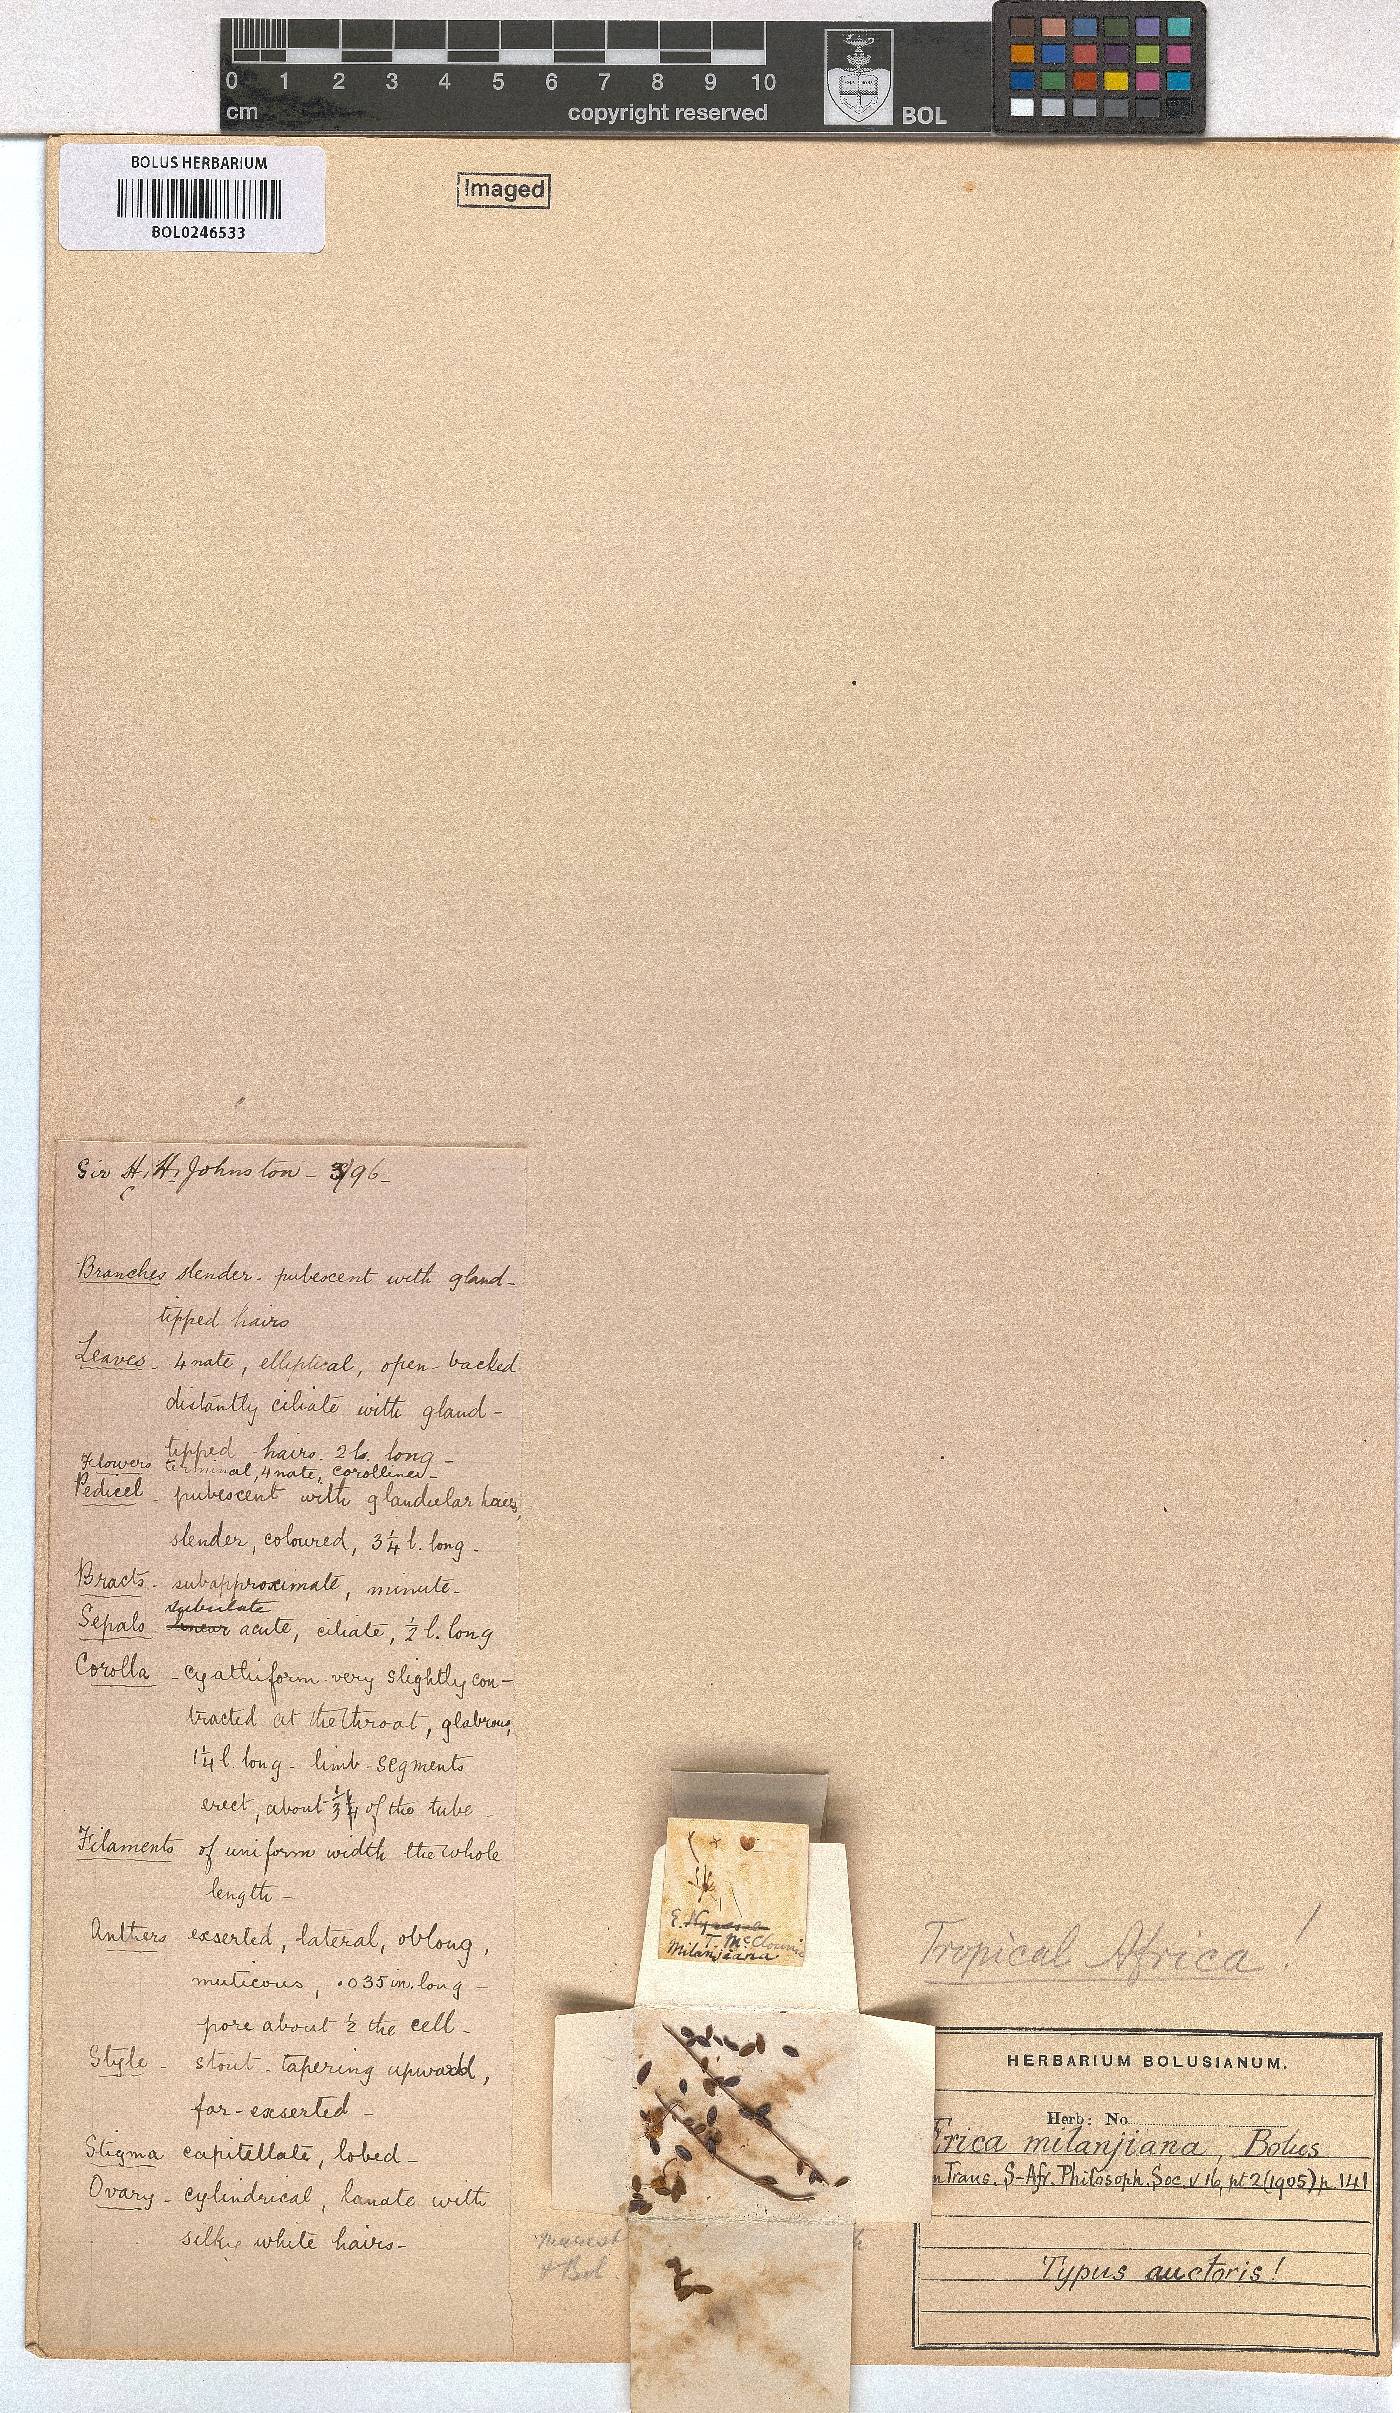 0 1 2 3 4 5 6 7 8 9 10
cm
copyright reserved
BOL
BOLUS HERBARIUM
BOL0246533
Imaged
Sir H. H. Johnston - 3/96 -
Branches slender - pubescent with gland-
tipped hairs
Leaves - 4 nate, elliptical, open-backed
distantly ciliate with gland-
tipped hairs. 2 l. long -
Flowers terminal, 4 nate, corolliner-
Pedicel - pubescent with glandular hairs,
slender, coloured, 3 1/4 l. long -
Bracts - subapproximate, minute -
subulate
Sepals linear acute, ciliate, 1/2 l. long
Corolla - cyathiform very slightly con-
tracted at the throat, glabrous,
1 1/4 l. long - limb - segments
erect, about 1/3 1/4 of the tube -
Filaments of uniform width the whole
length -
Anthers exserted, lateral, oblong,
muticous, .035 in. long -
pore about 1/2 the cell -
Style - stout - tapering upward,
far-exserted -
Stigma capitellate, lobed -
Ovary - cylindrical, lanate with
silky white hairs -
E.
T. McClounie
Milanjiana
Tropical Africa!
HERBARIUM BOLUSIANUM.
Herb: No
Erica milanjiana, Bolus
in Trans. S-Afr. Philosoph. Soc. v 16, pt 2 (1905) p. 141
Typus auctoris!
& Bol.